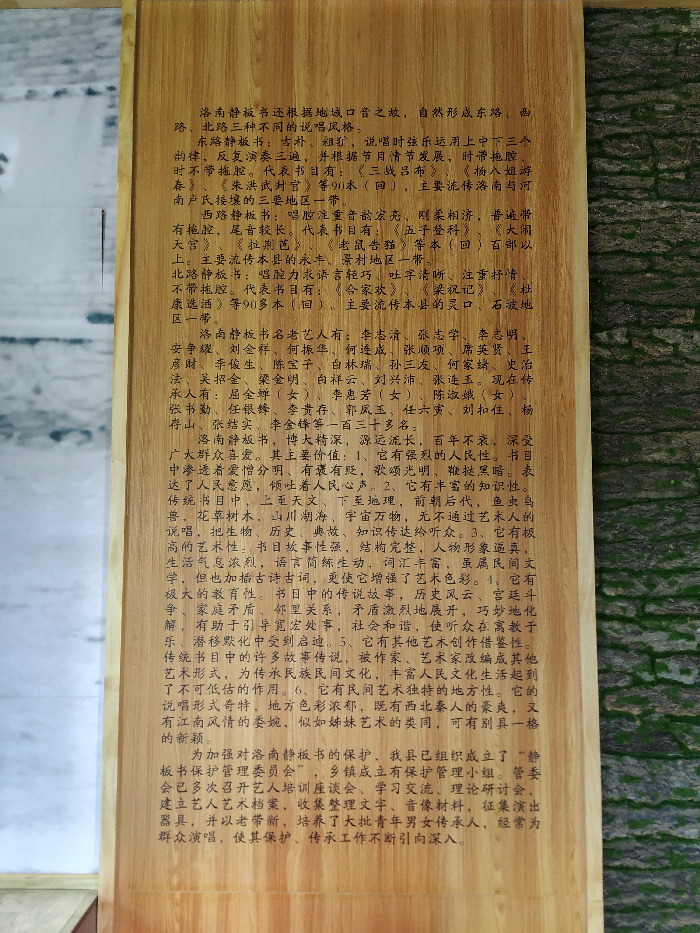 洛南静板书还根据地域口音之故，自然形成东路、西
路、北路三种不同的说唱风格。
东路静板书：古朴、粗犷，说唱时弦乐运用上中下三个
韵律，反复演奏三遍，并根据节目情节发展，时带拖腔、
时不带拖腔。代表书目有：《三战吕布》、《杨八姐游
春》、《朱洪武封官》等90本（回），主要流传洛南与河
南卢氏接壤的三要地区一带。
西路静板书：唱腔注重音韵宏亮、刚柔相济，普遍带
有拖腔，尾音较长。代表书目有：《五子登科》、《大闹
天宫》、《拉荆笆》、《老鼠告猫》等本（回）百部以
上。主要流传本县的永丰、景村地区一带。
北路静板书：唱腔力求语言轻巧、吐字清晰、注重抒情、
不带拖腔。代表书目有：《合家欢》、《梁祝记》、《杜
康造酒》等90多本（回）。主要流传本县的灵口、石坡地
区一带。
洛南静板书名老艺人有：李志清、张志学、李志明、
安争耀、刘金祥、何振华、何连成、张顺项、席英贤、王
彦财、李俊生、陈宝子、白林瑞、孙三友、何家绪、史治
法、吴招金、梁金明、白祥云、刘兴沛、张连玉。现在传
承人有：屈金蝉（女）、李惠芳（女）、陈淑娥（女）、
张书勤、任银锋、李贵存、郭凤玉、任六寅、刘扣住、杨
存山、张结实、李金锋等一百三十多名。
洛南静板书，博大精深，源远流长，百年不衰，深受
广大群众喜爱。其主要价值：1、它有强烈的人民性。书目
中渗透着爱憎分明、有褒有贬，歌颂光明、鞭挞黑暗。表
达了人民意愿，倾吐着人民心声。2、它有丰富的知识性。
传统书目中，上至天文、下至地理，前朝后代，鱼虫鸟
兽，花草树木，山川湖海，宇宙万物，无不通过艺术人的
说唱，把生物、历史、典故、知识传达给听众。3、它有极
高的艺术性。书目故事性强，结构完整，人物形象逼真，
生活气息浓烈，语言简练生动，词汇丰富，虽属民间文
学，但也加插古诗古词，更使它增强了艺术色彩。4、它有
极大的教育性。书目中的传说故事，历史风云、宫廷斗
争、家庭矛盾、邻里关系，矛盾激烈地展开，巧妙地化
解，有助于引导宽宏处事，社会和谐，使听众在寓教于
乐、潜移默化中受到启迪。5、它有其他艺术创作借鉴性。
传统书目中的许多故事传说，被作家、艺术家改编成其他
艺术形式，为传承民族民间文化，丰富人民文化生活起到
了不可低估的作用。6、它有民间艺术独特的地方性。它的
说唱形式奇特，地方色彩浓郁，既有西北秦人的豪爽，又
有江南风情的委婉，似如姊妹艺术的类同，可有别具一格
的新颖。
为加强对洛南静板书的保护、我县已组织成立了“静
板书保护管理委员会”，乡镇成立有保护管理小组。管委
会已多次召开艺人培训座谈会、学习交流、理论研讨会，
建立艺人艺术档案，收集整理文字、音像材料，征集演出
器具，并以老带新，培养了大批青年男女传承人，经常为
群众演唱，使其保护、传承工作不断引向深入。